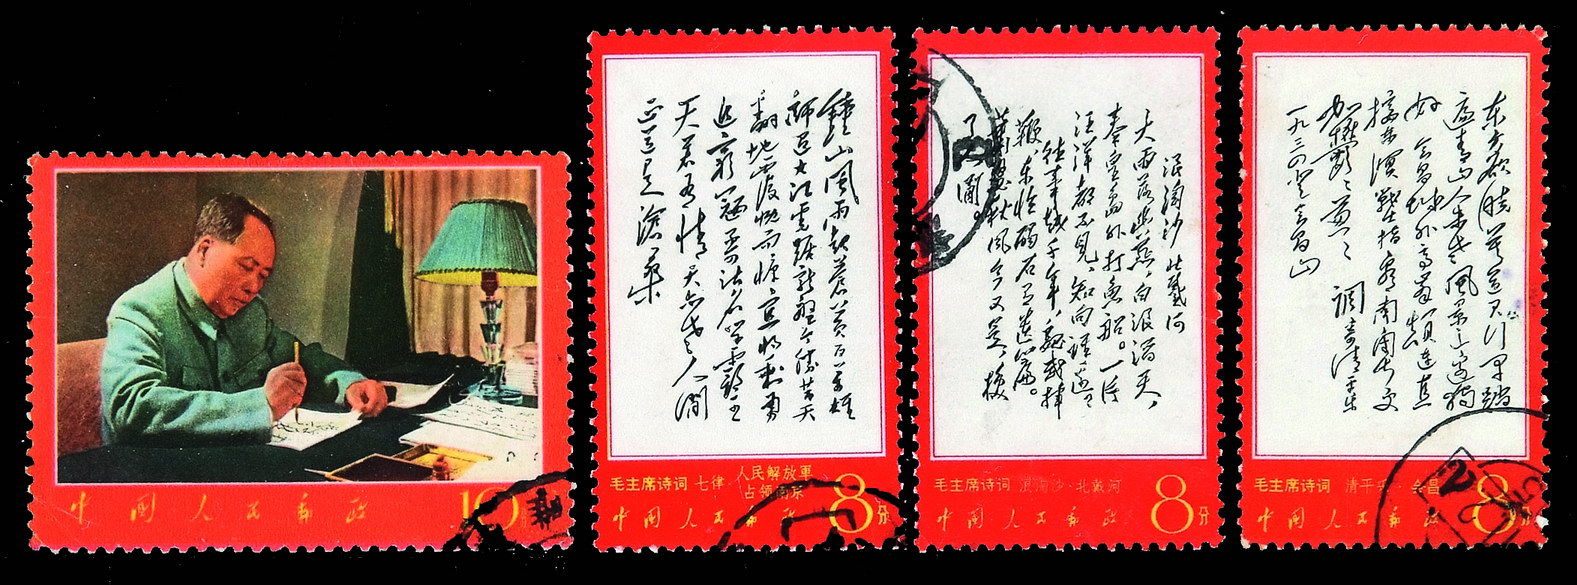 中国人民邮政
10
鐘山風雨起蒼黄百万雄
師过大江虎踞龍盤今勝昔天
翻地覆慨而慷宜將剩勇
追窮寇不可沽名学霸王
天若有情天亦老人間
正道是滄桑
毛主席诗词 七律·人民解放軍
占领南京
8分
中国人民邮政
浪淘沙 北戴河
大雨落幽燕,白浪滔天,
秦皇島外打魚船。一片
汪洋都不見,知向誰邊?
往事越千年,魏武揮
鞭,東臨碣石有遺篇。
蕭瑟秋風今又是,換
了人間。
毛主席诗词 浪淘沙·北戴河
中国人民邮政
8分
东方欲晓莫道君行早踏
遍青山人未老风景这边独
好 会昌城外高峰颠连直
接东溟战士指看南粤更
加郁々葱々 调寄清平乐
一九三四登会昌山
毛主席诗词 清平乐·会昌
中国人民邮政
8分